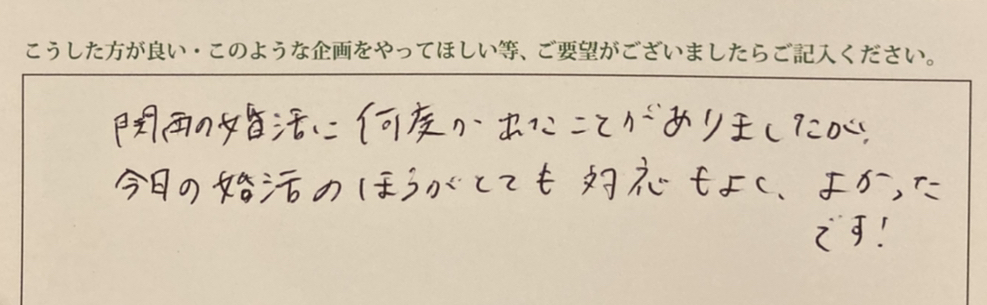 こうした方が良い・このような企画をやってほしい等、ご要望がございましたらご記入ください。
関西の婚活に何度か われたことがありましたが、
今日の婚活のほうがとても対応もよく、よかった
です!